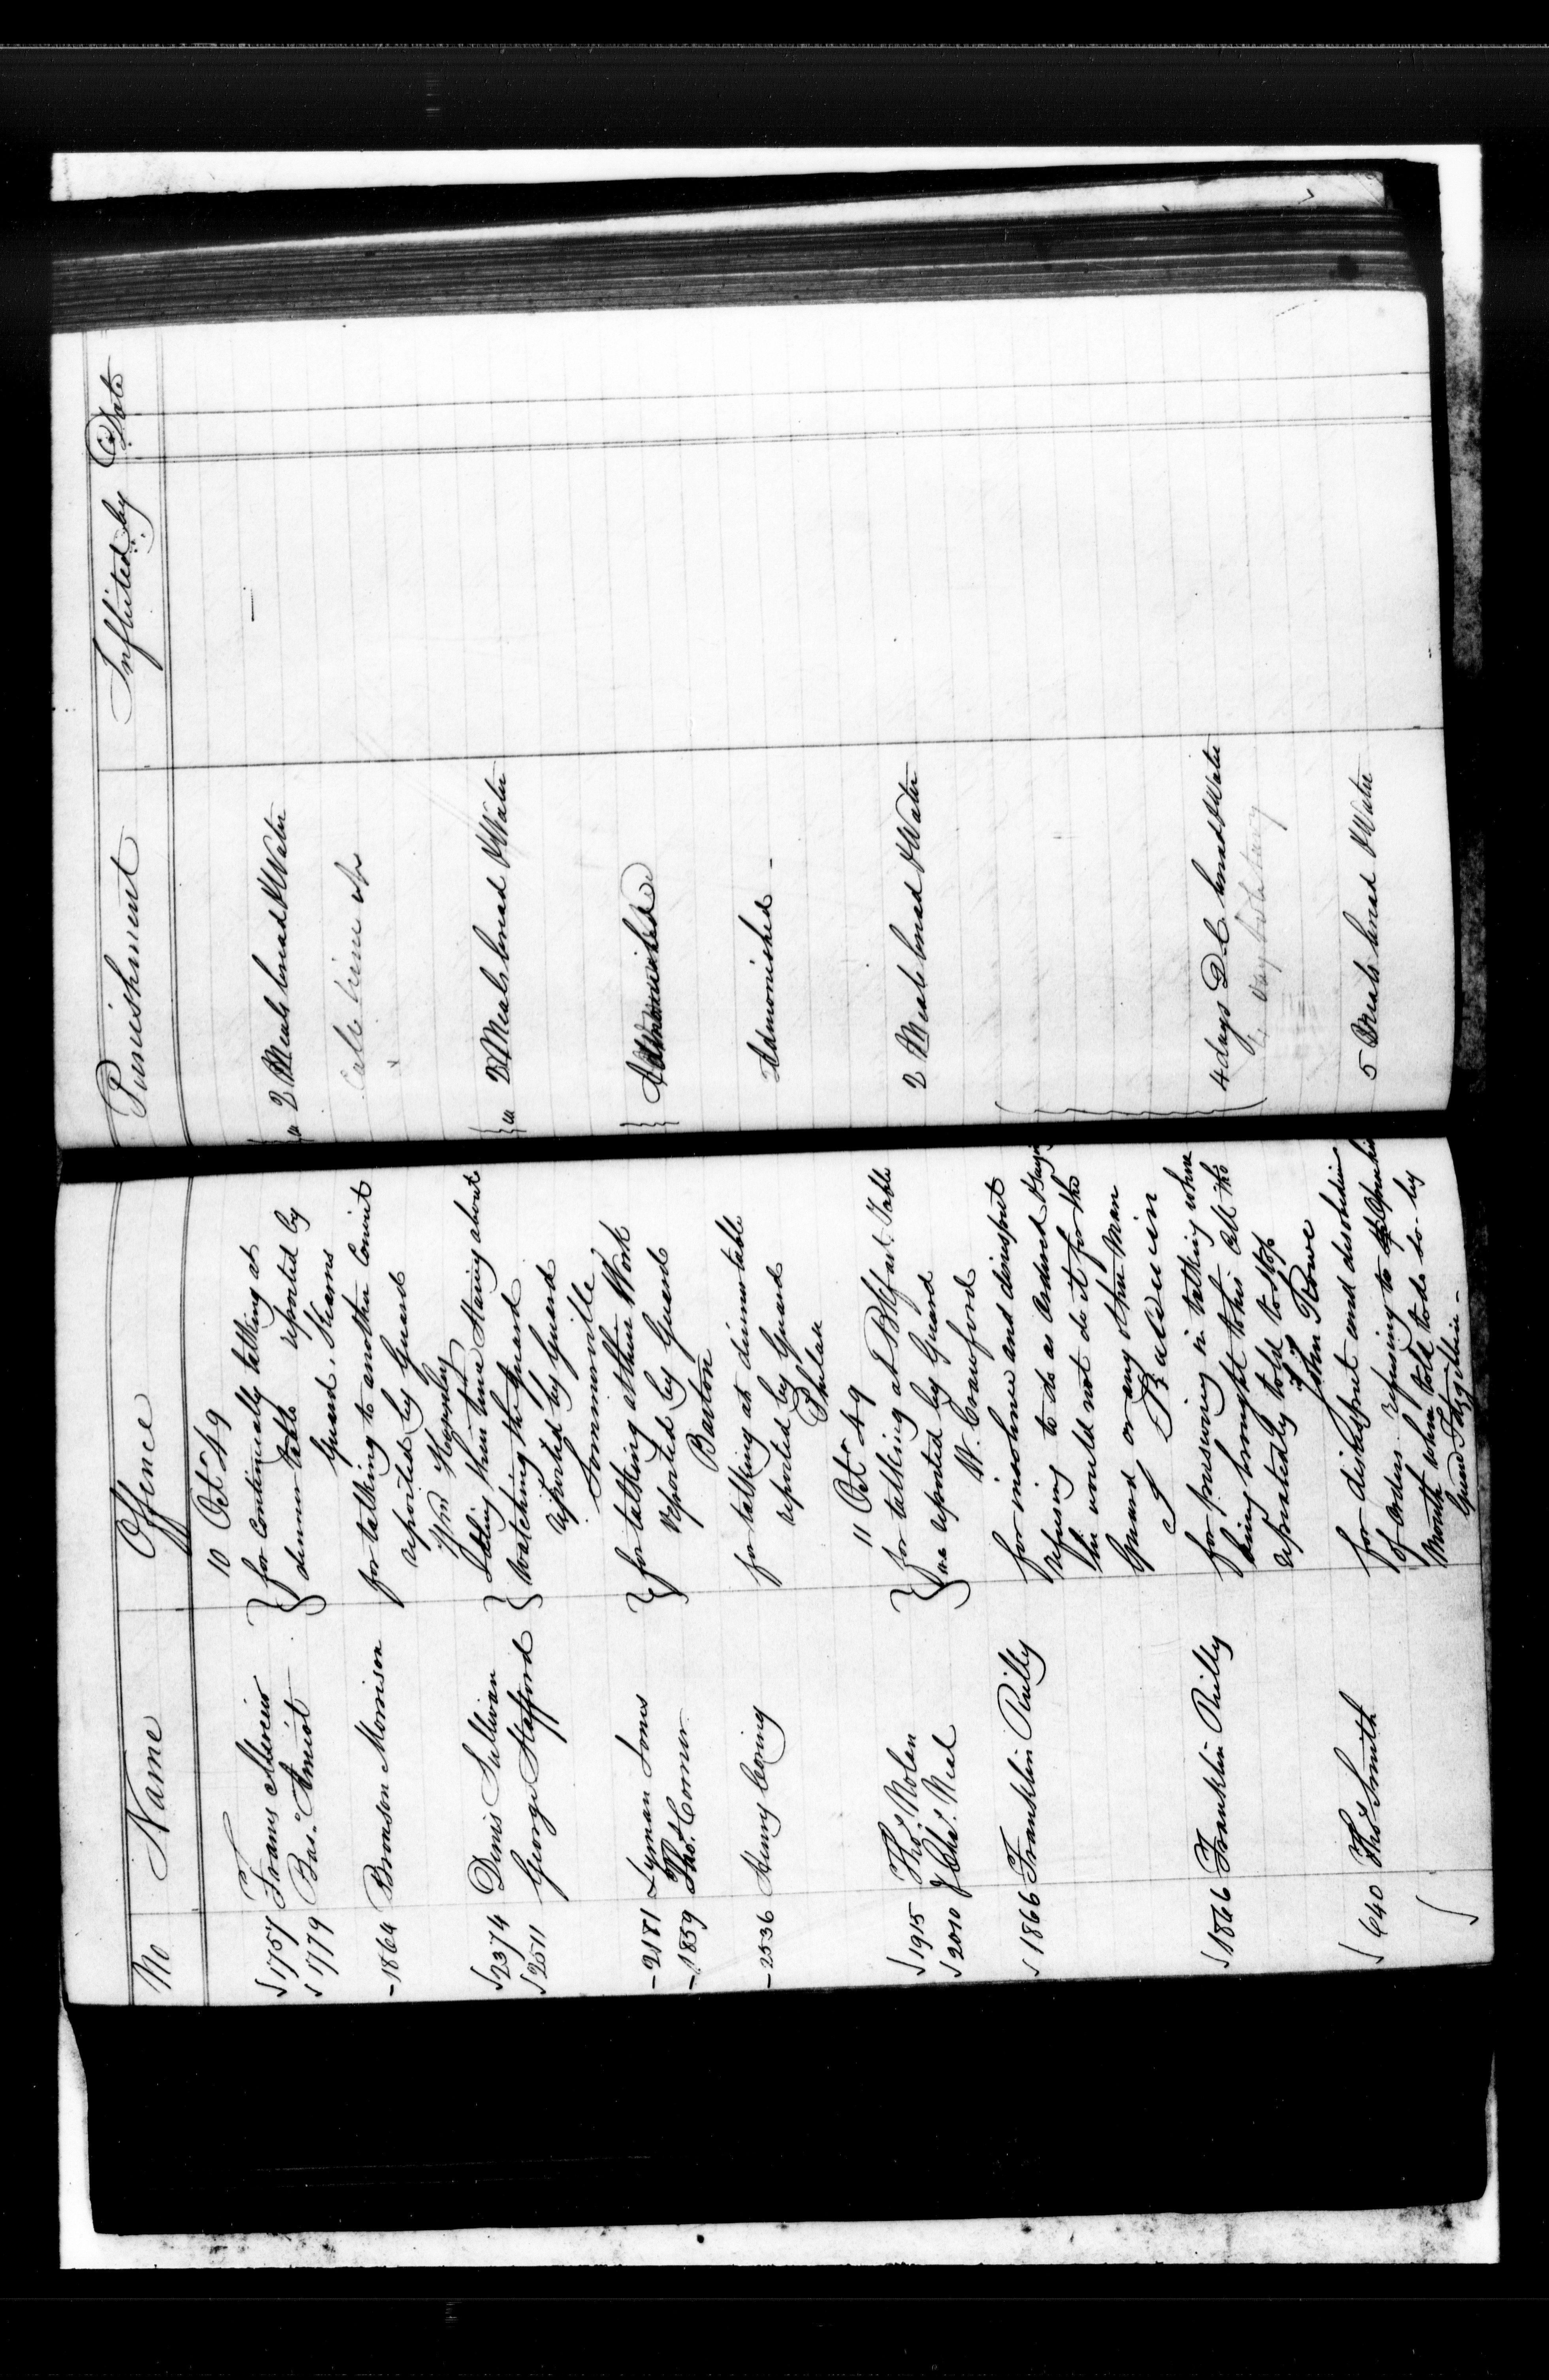 No Name Offence Punishment Inflicted by Date
10 Octr 49
1757 Francis } for Continually talking at } ea 2 Meals bread & Water
1779 Bas. Amiot } dinner table reported by
Guard. Kearns
1864 Bronson Morrison for talking to another Convict
reported by Guard
Wm
2374 Denis Sullivan } Idling their time Staring about } ea 2 Meals bread & Water
2511 George Stafford } Watching the Guard
reported by Guard
Sommerville
2181 Lyman Jones } for talking at their Work } Admonished
1859 Thos. Connor } reported by Guard
Barton
2536 Henry for talking at dinner table Admonished
reported by Guard
Phelan
11 Octr 49
1915 Thos. Nolan } for talking at Bkfast. Table 2 Meals bread & Water
2010 Chs. Neel } are reported by Guard
W. Crawford
1866 Franklin Reilly for insolence and disrespect
refusing to do as ordered &
he would not do it for the
Guard or any other Man
Baldwin
1866 Franklin Reilly for persevering in talking when 4 days D.C. bread & Water
being brought to his Cell tho
repeatedly told to stop
John Rowe
640 Thos Smith for disrespect and disobedience 5 Meals bread & Water
of Orders. refusing to
Mouth when told to do so by
Guard